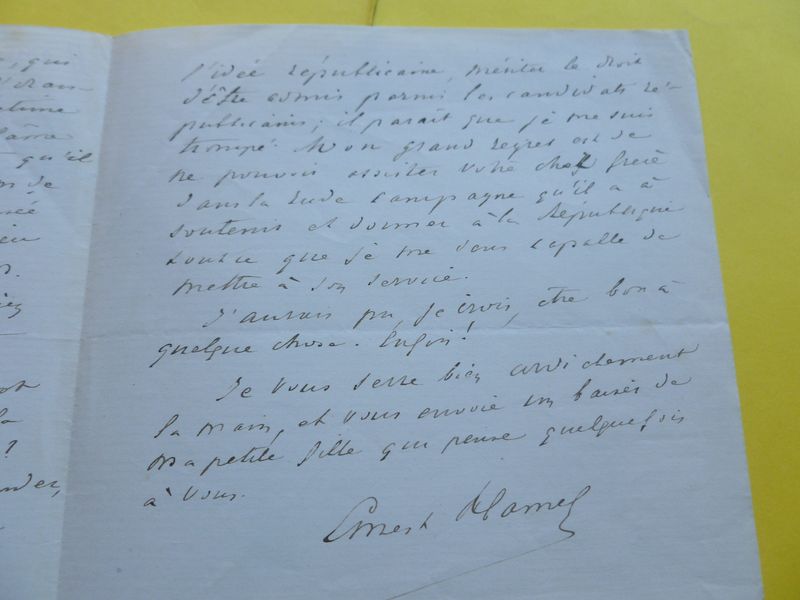 , qui
l'idée républicaine, mériter le droit
d'être admis parmi les candidats ré-
publicains; il paraît que je me suis
trompé. Mon grand regret est de
ne pouvoir assister votre cher frère
dans la rude campagne qu'il a à
soutenir et donner à la République
tout ce que je me sens capable de
mettre à son service.
J'aurais pu, je crois, être bon à
quelque chose. Enfin!
Je vous serre bien cordialement
la main, et vous envoie un baiser de
ma petite fille qui pense quelquefois
à vous.
Ernest Hamel
qu'il